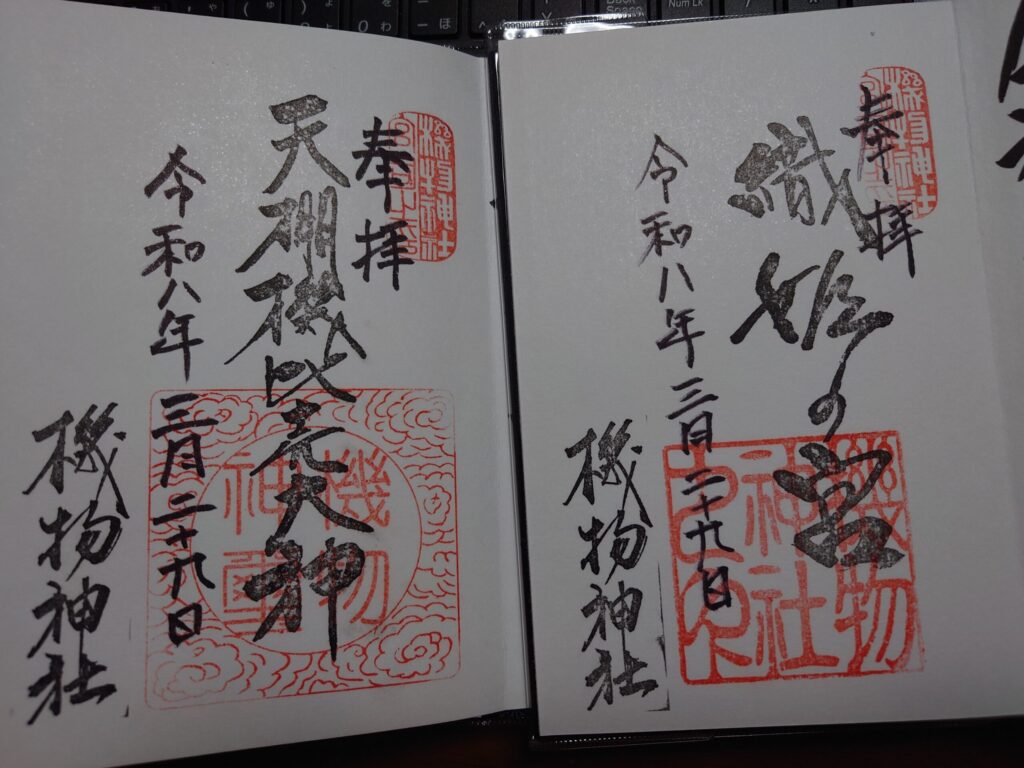 奉拝
織姫の宮
令和八年三月二十九日
機物神社
機物神社
奉拝
天棚機比売大神
令和八年三月二十九日
機物神社
機物神社
機物
神